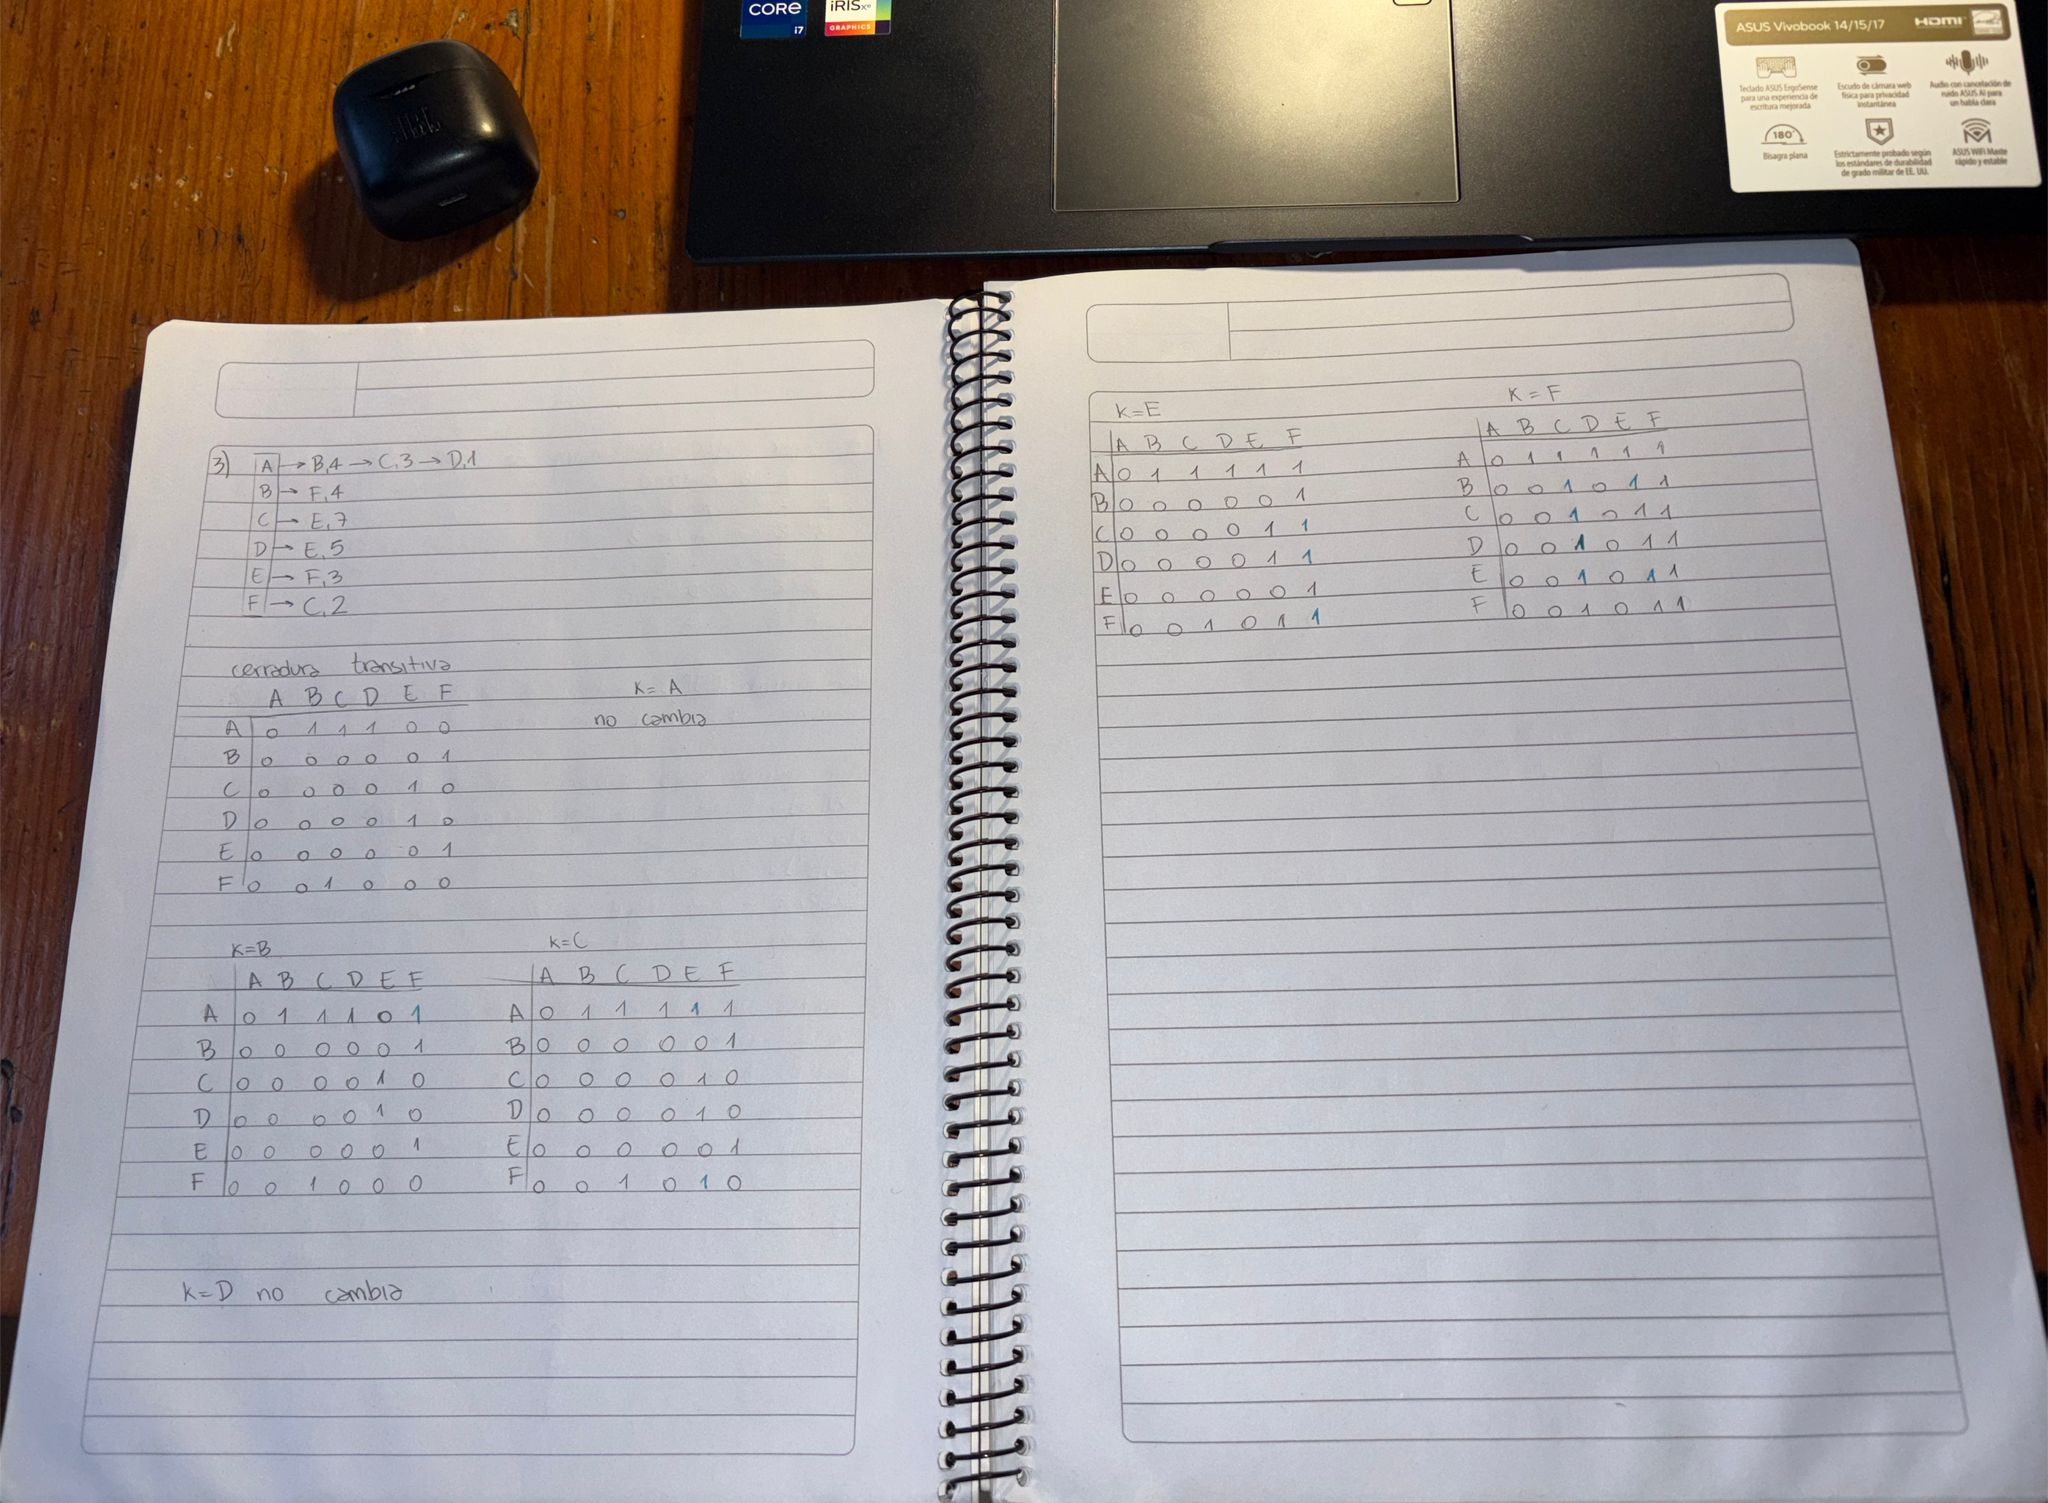 CORE
i7
iRIS Xe
GRAPHICS
ASUS Vivobook 14/15/17 HDMI
Teclado ASUS ErgoSense
para una experiencia de
escritura mejorada
Escudo de cámara web
física para privacidad
instantánea
Audio con cancelación de
ruido ASUS AI para
un habla clara
180°
Bisagra plana
Estrictamente probado según
los estándares de durabilidad
de grado militar de EE. UU.
ASUS WiFi Master
rápido y estable
JBL
3) A → B,4 → C,3 → D,1
B → F,4
C → E,7
D → E,5
E → F,3
F → C,2
cerradura transitiva
A B C D E F
A 0 1 1 1 0 0
B 0 0 0 0 0 1
C 0 0 0 0 1 0
D 0 0 0 0 1 0
E 0 0 0 0 0 1
F 0 0 1 0 0 0
K= A
no cambia
K=B
A B C D E F
A 0 1 1 1 0 1
B 0 0 0 0 0 1
C 0 0 0 0 1 0
D 0 0 0 0 1 0
E 0 0 0 0 0 1
F 0 0 1 0 0 0
K=C
A B C D E F
A 0 1 1 1 1 1
B 0 0 0 0 0 1
C 0 0 0 0 1 0
D 0 0 0 0 1 0
E 0 0 0 0 0 1
F 0 0 1 0 1 0
K=D no cambia
K=E
A B C D E F
A 0 1 1 1 1 1
B 0 0 0 0 0 1
C 0 0 0 0 1 1
D 0 0 0 0 1 1
E 0 0 0 0 0 1
F 0 0 1 0 1 1
K = F
A B C D E F
A 0 1 1 1 1 1
B 0 0 1 0 1 1
C 0 0 1 0 1 1
D 0 0 1 0 1 1
E 0 0 1 0 1 1
F 0 0 1 0 1 1